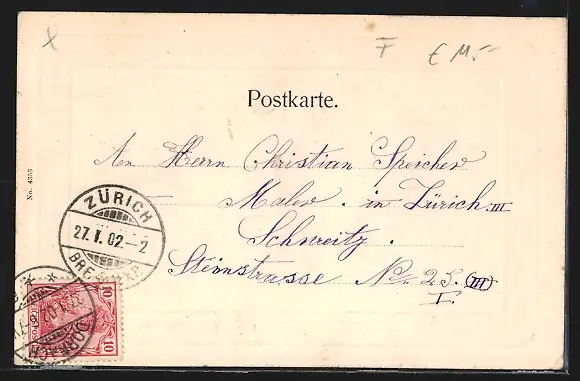 x F € 15.-
Postkarte.
An Herrn Christian Speicher
Maler. in Zürich III
Schweitz.
Steinstrasse No. 25 (III)
I.
No. 4353
ZÜRICH
27.I.02.-2
10 10